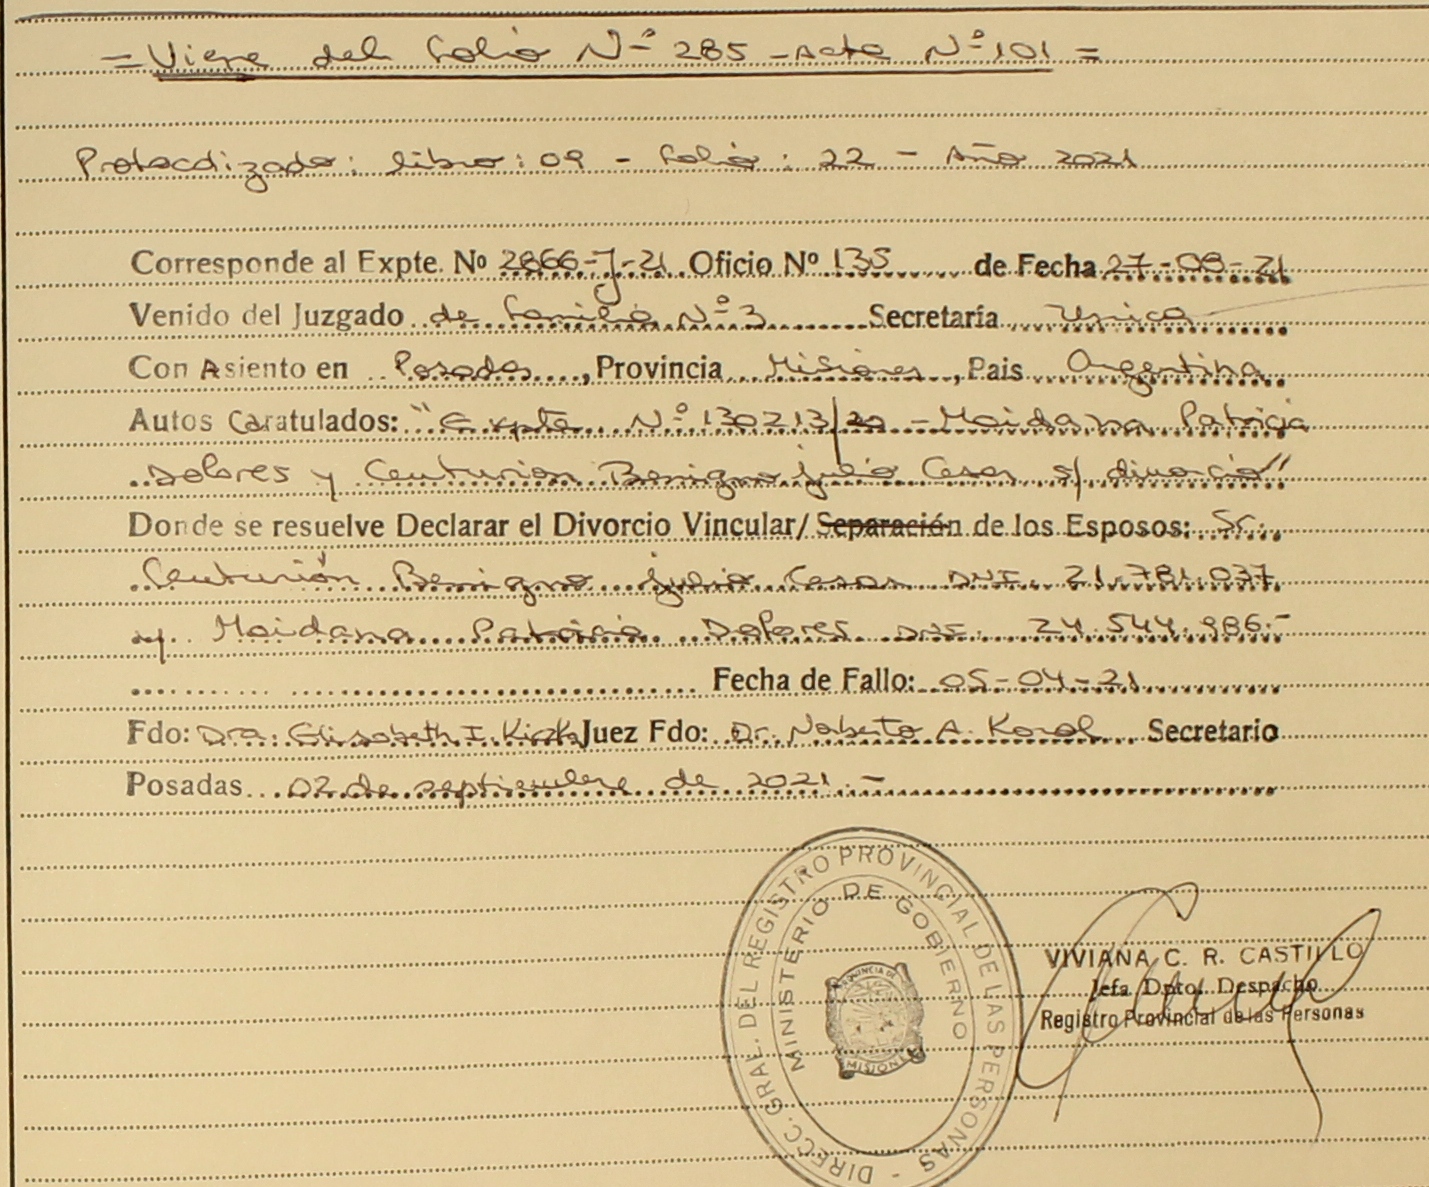 = Viene del folio Nº 285 - Acta Nº 101 =
Protocolizado: libro: 09 - folio: 22 - Año 2021
Corresponde al Expte. Nº 2866-J-21 Oficio Nº 135 de Fecha 27-08-21
Venido del Juzgado de familia Nº 3 Secretaría Unica
Con Asiento en Posadas, Provincia Misiones, Pais Argentina
Autos Caratulados: "Expte Nº 130213/20 - Maidana Patricia
Dolores y Centurion Benigno julio Cesar s/ divorcio"
Donde se resuelve Declarar el Divorcio Vincular/ Separación de los Esposos: Sr.
Centurión Benigno julio Cesar DNI. 21.781.037
y Maidana Patricia Dolores DNI. 24.544.986.-
Fecha de Fallo: 05-04-21
Fdo: Dra. Elisabeth I. Juez Fdo: Dr. Norberto A. Korol Secretario
Posadas 02 de septiembre de 2021.-
DIRECC. GRAL. DEL REGISTRO PROVINCIAL DE LAS PERSONAS -
MINISTERIO DE GOBIERNO
PROVINCIA DE
MISIONES
VIVIANA C. R. CASTILLO
Jefa Dpto. Despacho
Registro Provincial de las Personas